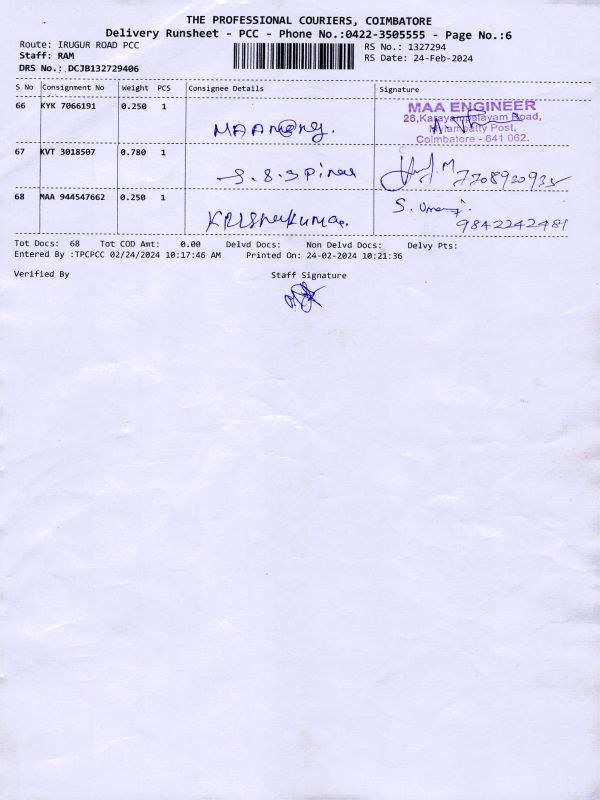 THE PROFESSIONAL COURIERS, COIMBATORE
Delivery Runsheet - PCC - Phone No.:0422-3505555 - Page No.:6
Route: IRUGUR ROAD PCC
RS No.: 1327294
Staff: RAM
RS Date: 24-Feb-2024
DRS No.: DCJB132729406
S No Consignment No Weight PCS Consignee Details Signature
66 KYK 7066191 0.250 1
MAA ENGINEER
26,Karayampalayam Road,
Mylampatty Post,
Coimbatore - 641 062.
67 KVT 3018507 0.780 1
7708920935
68 MAA 944547662 0.250 1 Krishnakumar.
9842242481
Tot Docs: 68 Tot COD Amt: 0.00 Delvd Docs: Non Delvd Docs: Delvy Pts:
Entered By :TPCPCC 02/24/2024 10:17:46 AM Printed On: 24-02-2024 10:21:36
Verified By Staff Signature